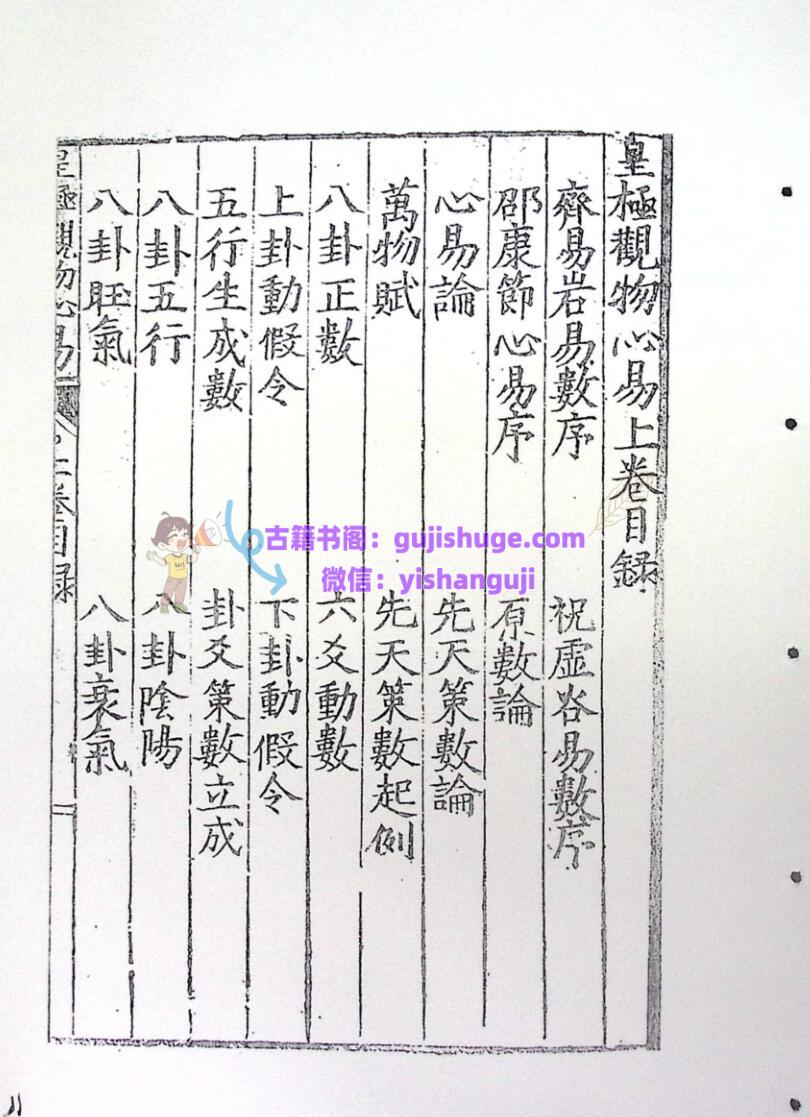 皇極觀物心易上卷目録
齊易岩易數序 祝虛谷易數序
邵康節心易序 原數論
心易論 先天策數論
萬物賦 先天策數起例
八卦正數 六爻動數
上卦動假令 下卦動假令
五行生成數 卦爻策數立成
八卦五行 八卦陰陽
八卦旺氣 八卦衰氣
皇極觀物心易 上卷目録
古籍书阁：gujishuge.com
微信：yishanguji
11